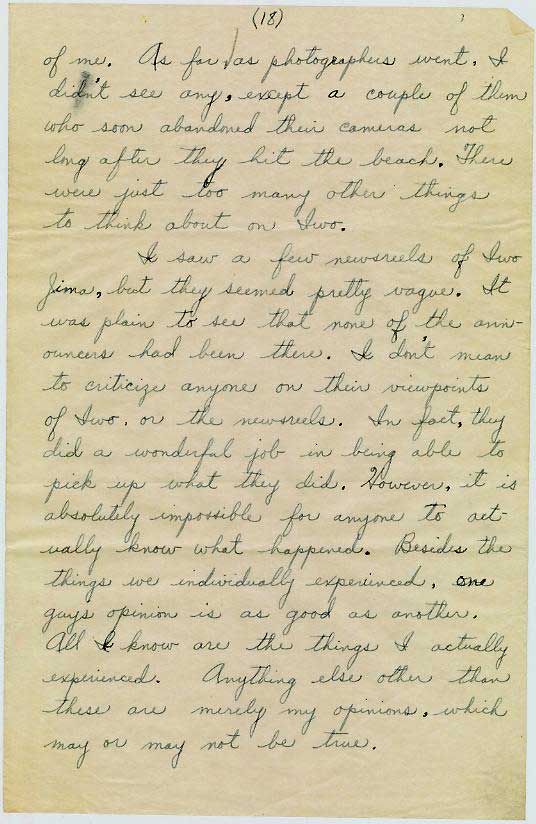 (18)
of me. As far as photographers went, I
didn't see any, except a couple of them
who soon abandoned their cameras not
long after they hit the beach. There
were just too many other things
to think about on Iwo.
I saw a few newsreels of Iwo
Jima, but they seemed pretty vague. It
was plain to see that none of the ann-
ouncers had been there. I don't mean
to criticize anyone on their viewpoints
of Iwo, or the newsreels. In fact, they
did a wonderful job in being able to
pick up what they did. However, it is
absolutely impossible for anyone to act-
ually know what happened. Besides the
things we individually experienced, one
guys opinion is as good as another.
All I know are the things I actually
experienced. Anything else other than
these are merely my opinions, which
may or may not be true.